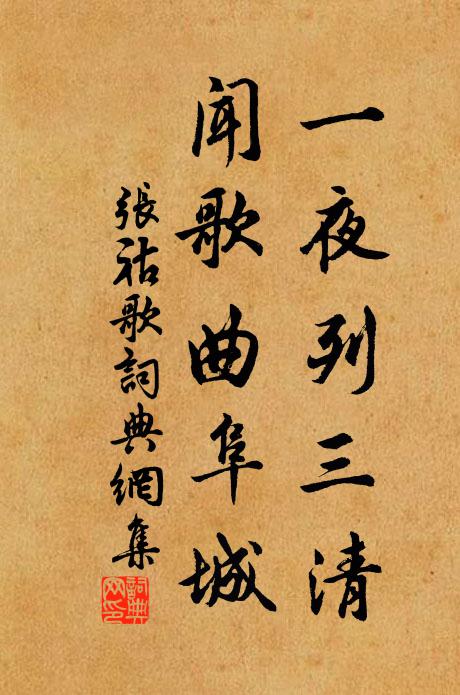 一夜列三清
聞歌曲阜城
張祜歌詞典網集
詞典網印